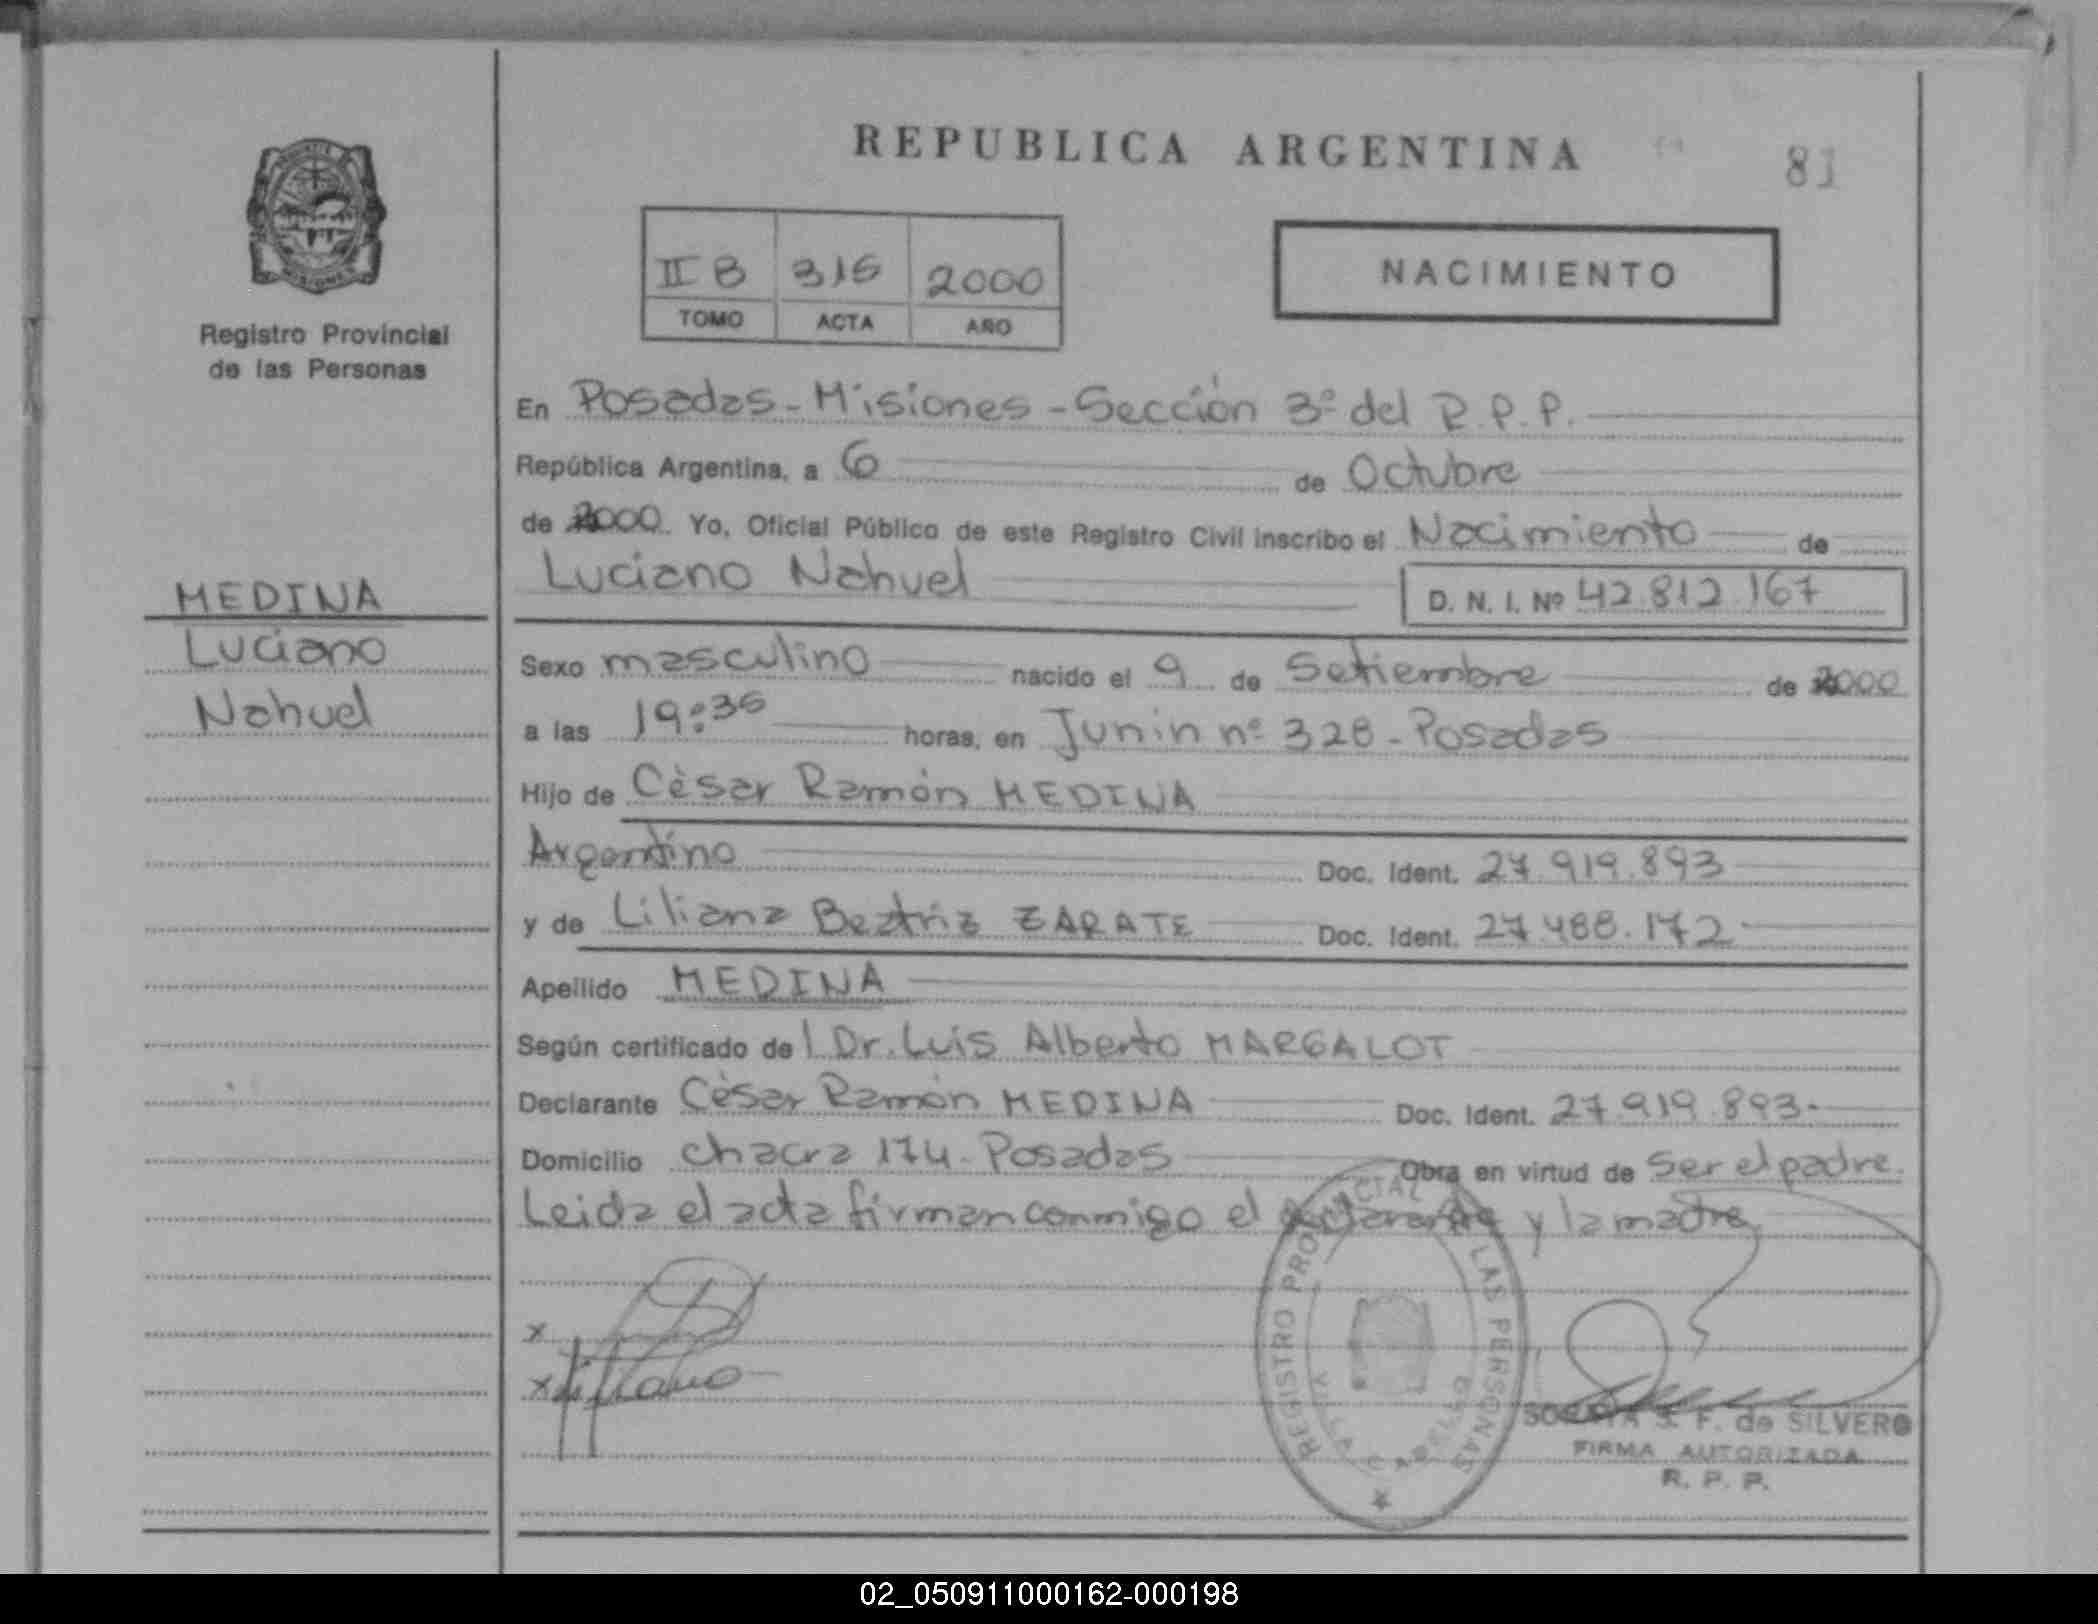 REPUBLICA ARGENTINA
81
Registro Provincial
de las Personas
II B 316 2000
TOMO ACTA AÑO
NACIMIENTO
En Posadas - Misiones - Sección 3º del R.P.P.
República Argentina, a 6 de Octubre
de 2000 Yo, Oficial Público de este Registro Civil inscribo el Nacimiento de
Luciano Nahuel D. N. I. Nº 42.812.167
MEDINA
Luciano
Nahuel
Sexo masculino nacido el 9 de Setiembre de 2000
a las 19:36 horas, en Junin nº 328 - Posadas
Hijo de Cèsar Ramón MEDINA
Argentino Doc. Ident. 27.919.893
y de Liliana Beatriz ZARATE Doc. Ident. 27.488.172
Apellido MEDINA
Según certificado de l Dr. Luis Alberto MARGALOT
Declarante Cèsar Ramón MEDINA Doc. Ident. 27.919.893.
Domicilio chacra 174 - Posadas Obra en virtud de ser el padre.
Leida el acta firman conmigo el declarante y la madre
x
x
REGISTRO PROVINCIAL LAS PERSONAS
VILLA CABELLO
S. F. de SILVERO
FIRMA AUTORIZADA
R. P. P.
02_050911000162-000198